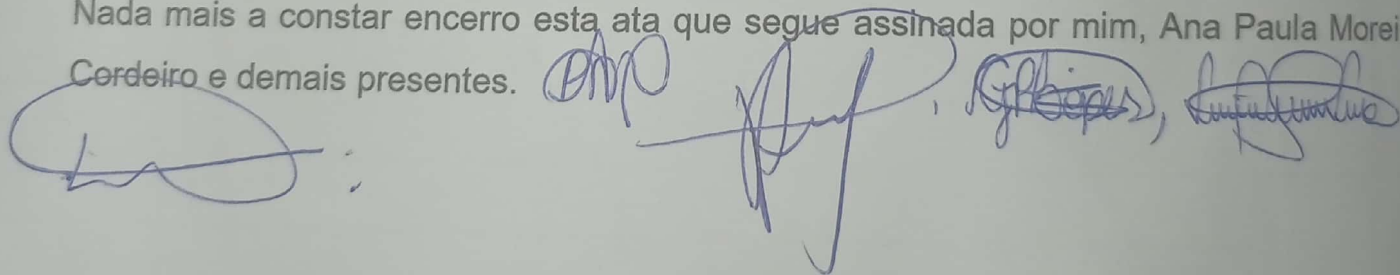 Nada mais a constar encerro esta ata que segue assinada por mim, Ana Paula Morei
Cordeiro e demais presentes.